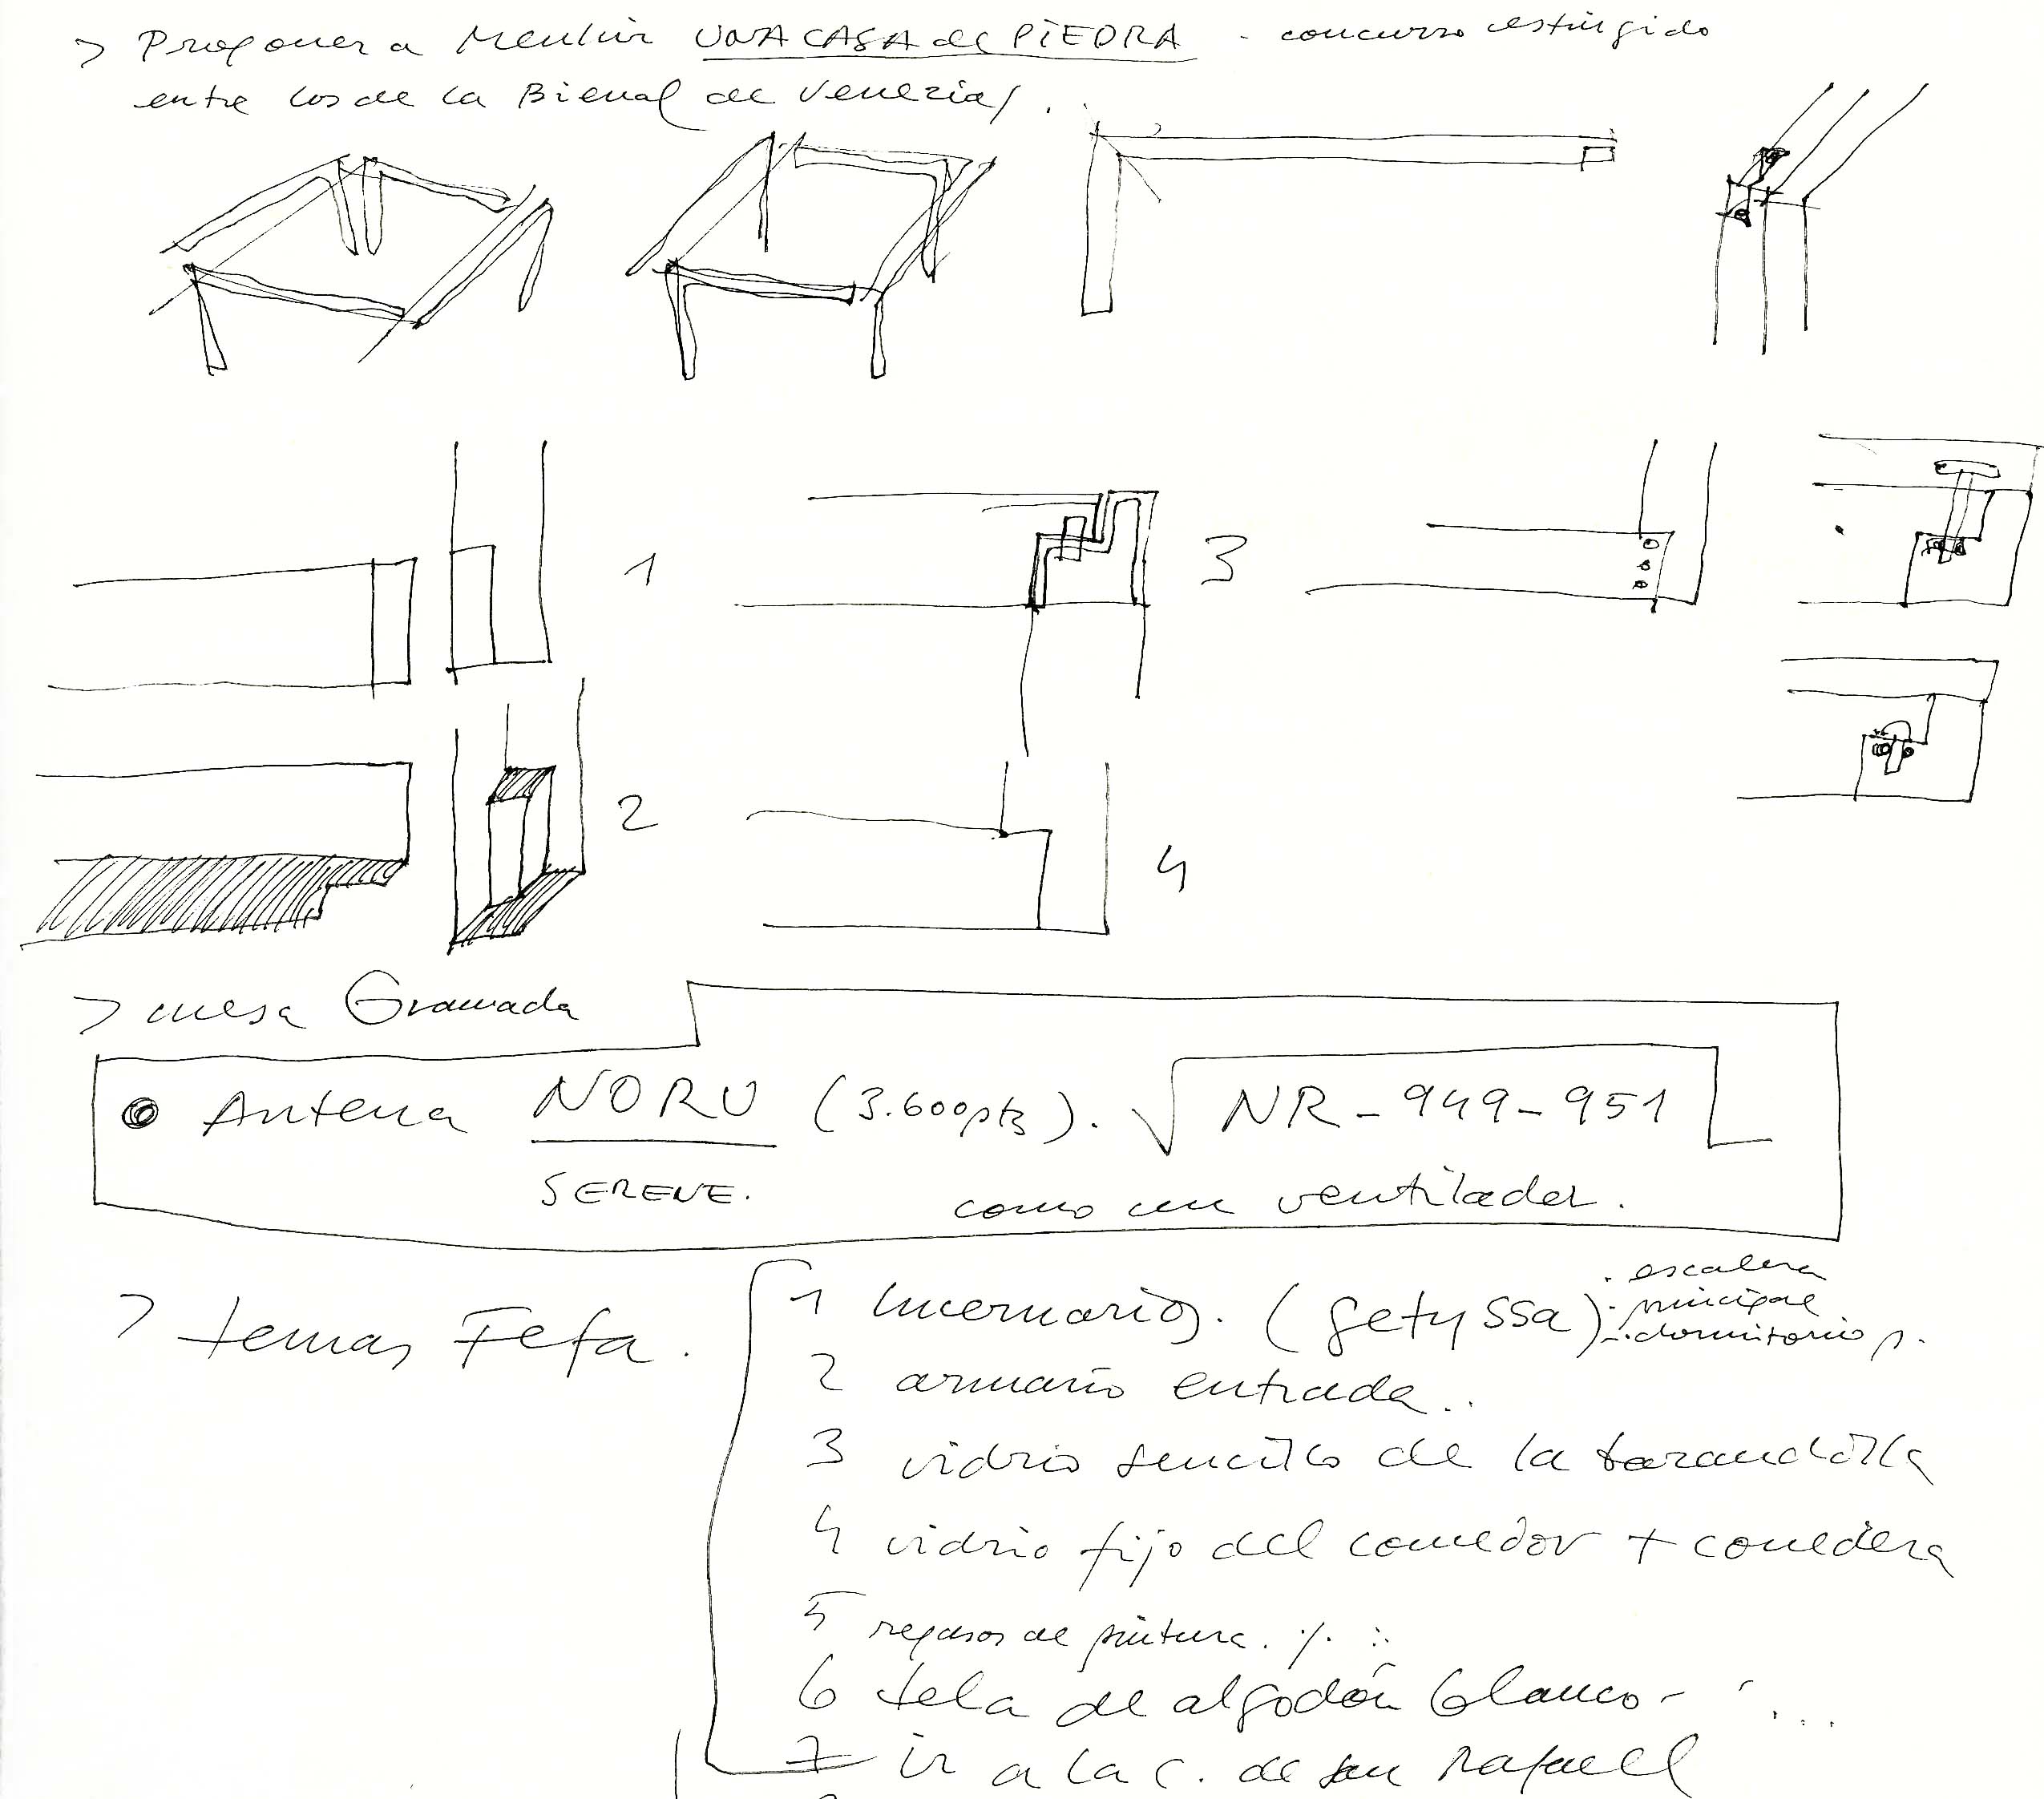 > Proponer a UNA CASA de PIEDRA - concurso restringido
entre los de la Bienal de Venezia/.
1
3
2
4
> mesa Granada
Antena NORU (3.600pts). NR-949-951
SERENE.
como un ventilador.
> temas Fefa.
1 lucernarios. (getyssa)
. escalera
principal
. dormitorio p.
2 armario entrada..
3 vidrio sencillo de la barandilla
4 vidrio fijo del comedor + corredera
5 repasos de pintura.
6 tela de algodón blanco-
7 ir a la c. de san Rafael